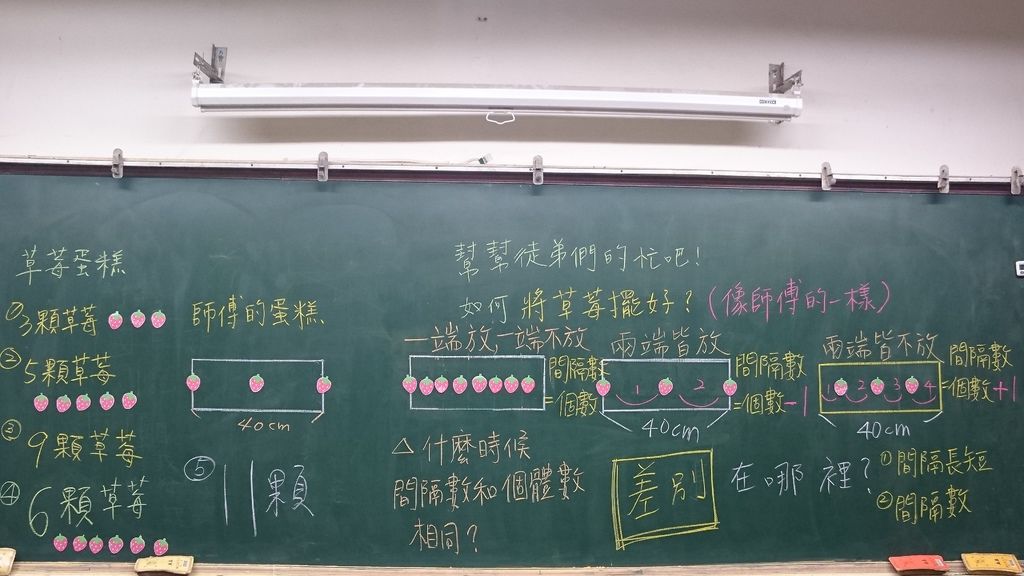 草莓蛋糕
①3顆草莓
②5顆草莓
③9顆草莓
④6顆草莓
師傅的蛋糕
40cm
⑤11顆
幫幫徒弟們的忙吧!
如何將草莓擺好?(像師傅的一樣)
一端放,一端不放
間隔數
=個數
兩端皆放
1 2
間隔數
=個數-1
40cm
兩端皆不放
1 2 3 4
間隔數
=個數+1
40cm
△什麼時候
間隔數和個體數
相同?
差別在哪裡?
①間隔長短
②間隔數